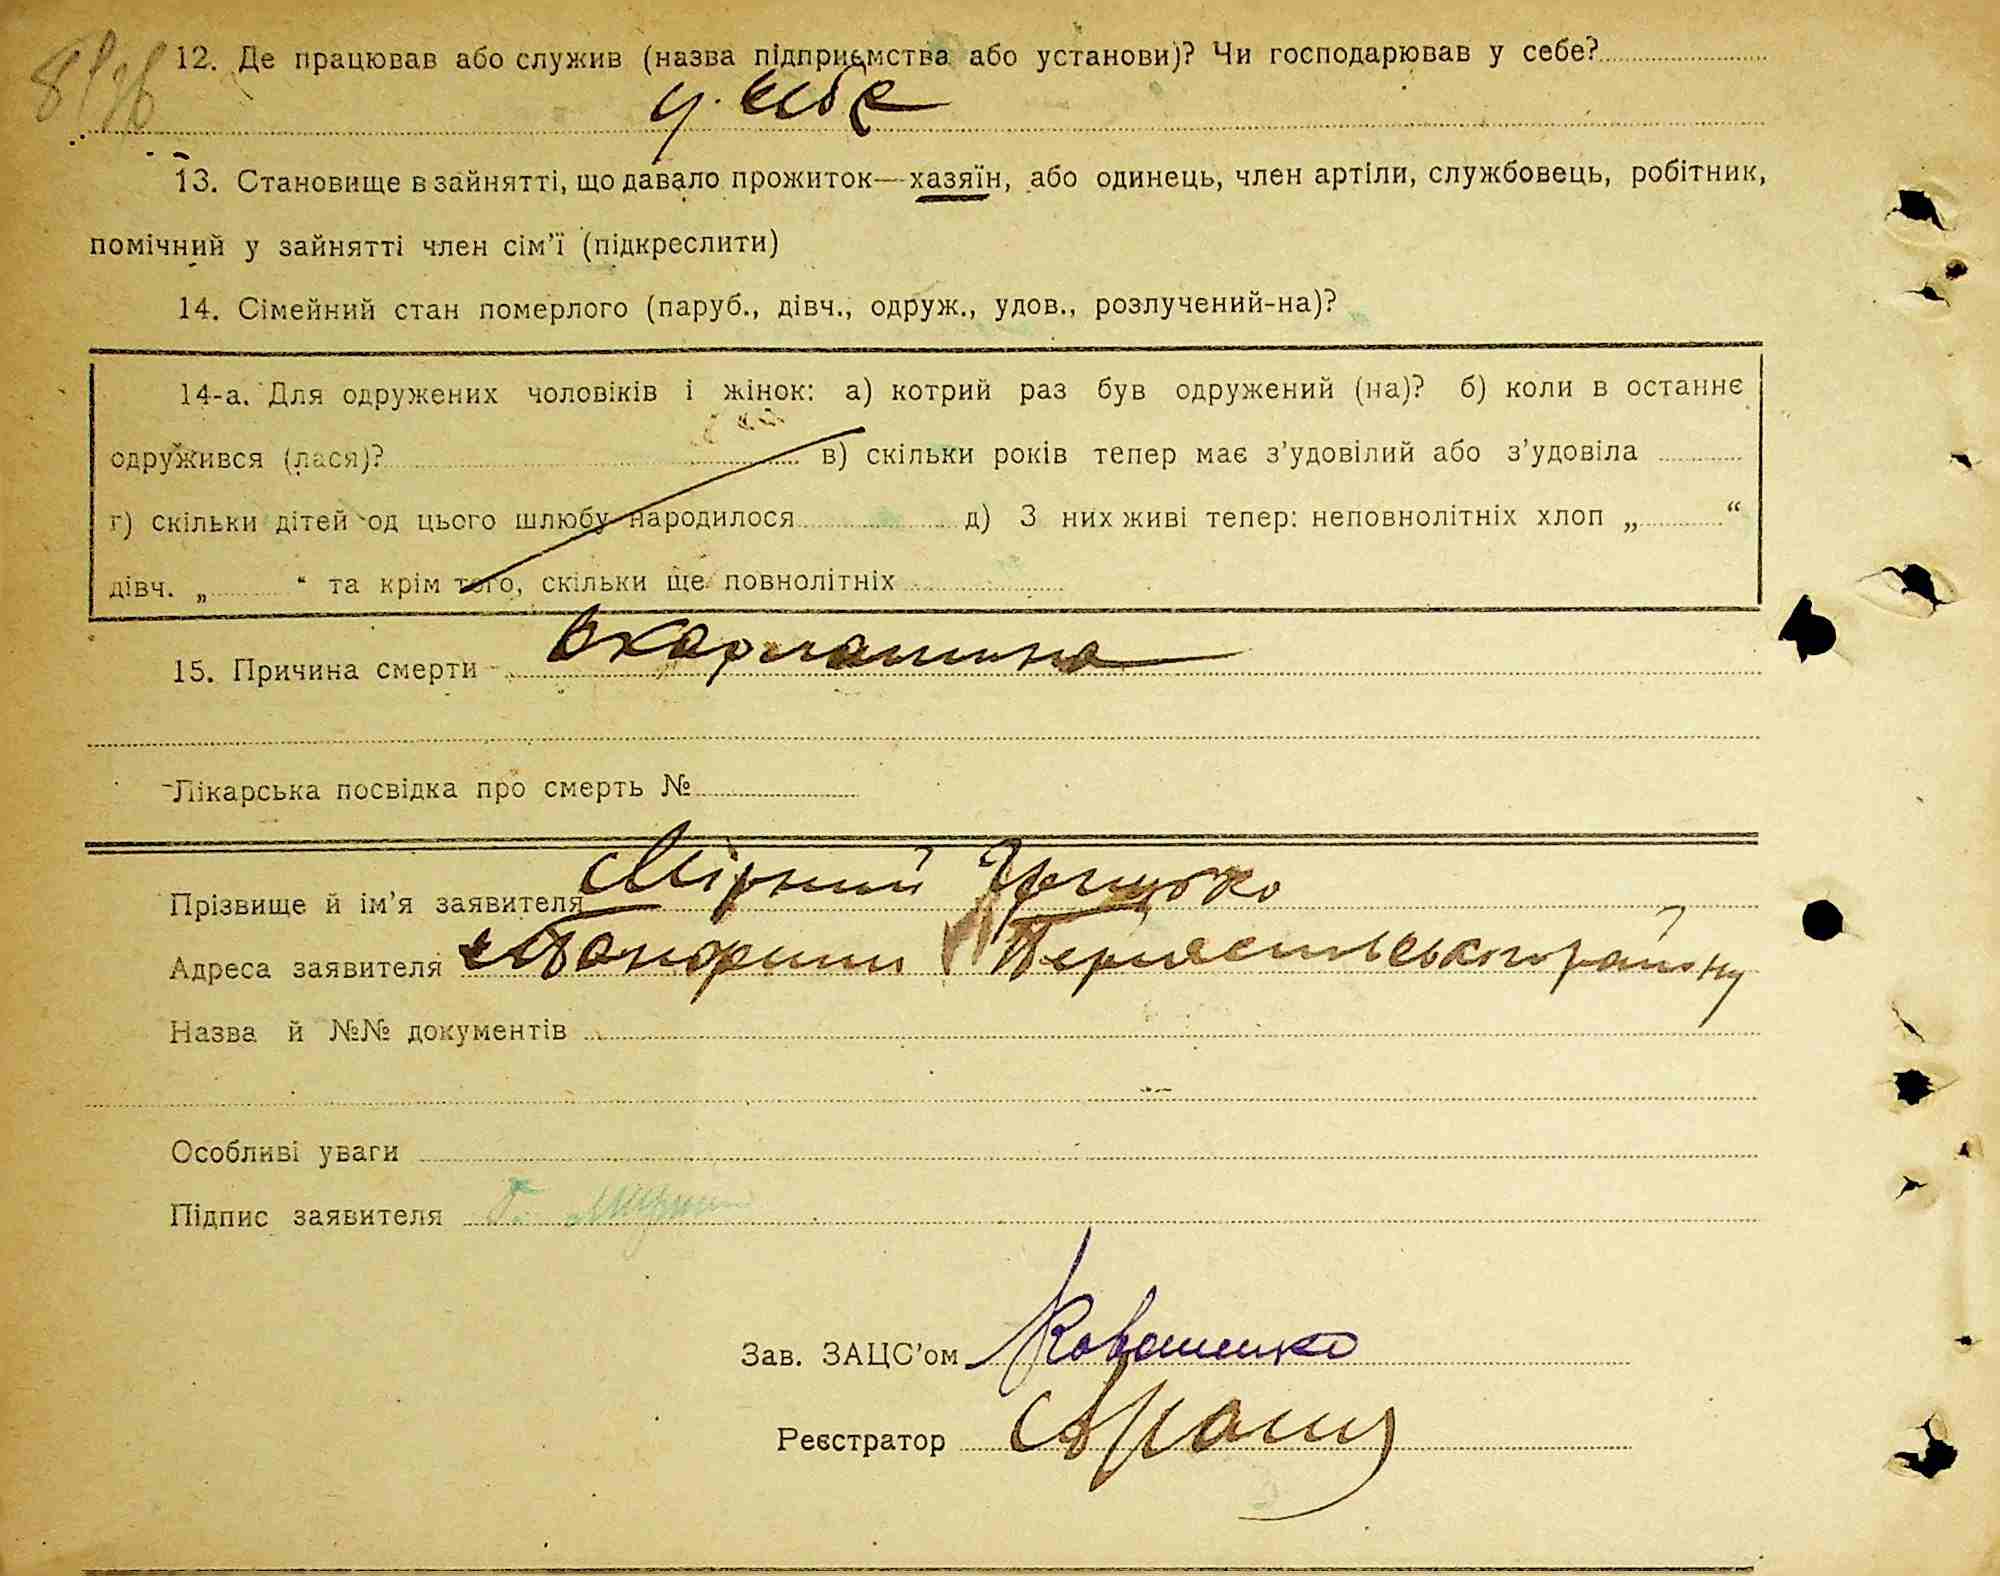 12. Де працював або служив (назва підприємства або установи)? Чи господарював у себе?
у себе
13. Становище в зайнятті, що давало прожиток—хазяїн, або одинець, член артіли, службовець, робітник,
помічний у зайнятті член сім’ї (підкреслити)
14. Сімейний стан померлого (паруб., дівч., одруж., удов., розлучений-на)?
14-а. Для одружених чоловіків і жінок: а) котрий раз був одружений (на)? б) коли в останнє
одружився (лася)? в) скільки років тепер має з’удовілий або з’удовіла
г) скільки дітей од цього шлюбу народилося д) З них живі тепер: неповнолітніх хлоп „ “
дівч. „ “ та крім того, скільки ще повнолітніх
15. Причина смерти скарлатина
Лікарська посвідка про смерть №
Прізвище й ім’я заявителя Мірний Грицько
Адреса заявителя району
Назва й №№ документів
Особливі уваги
Підпис заявителя
Зав. ЗАЦС’ом Коваленко
Реєстратор